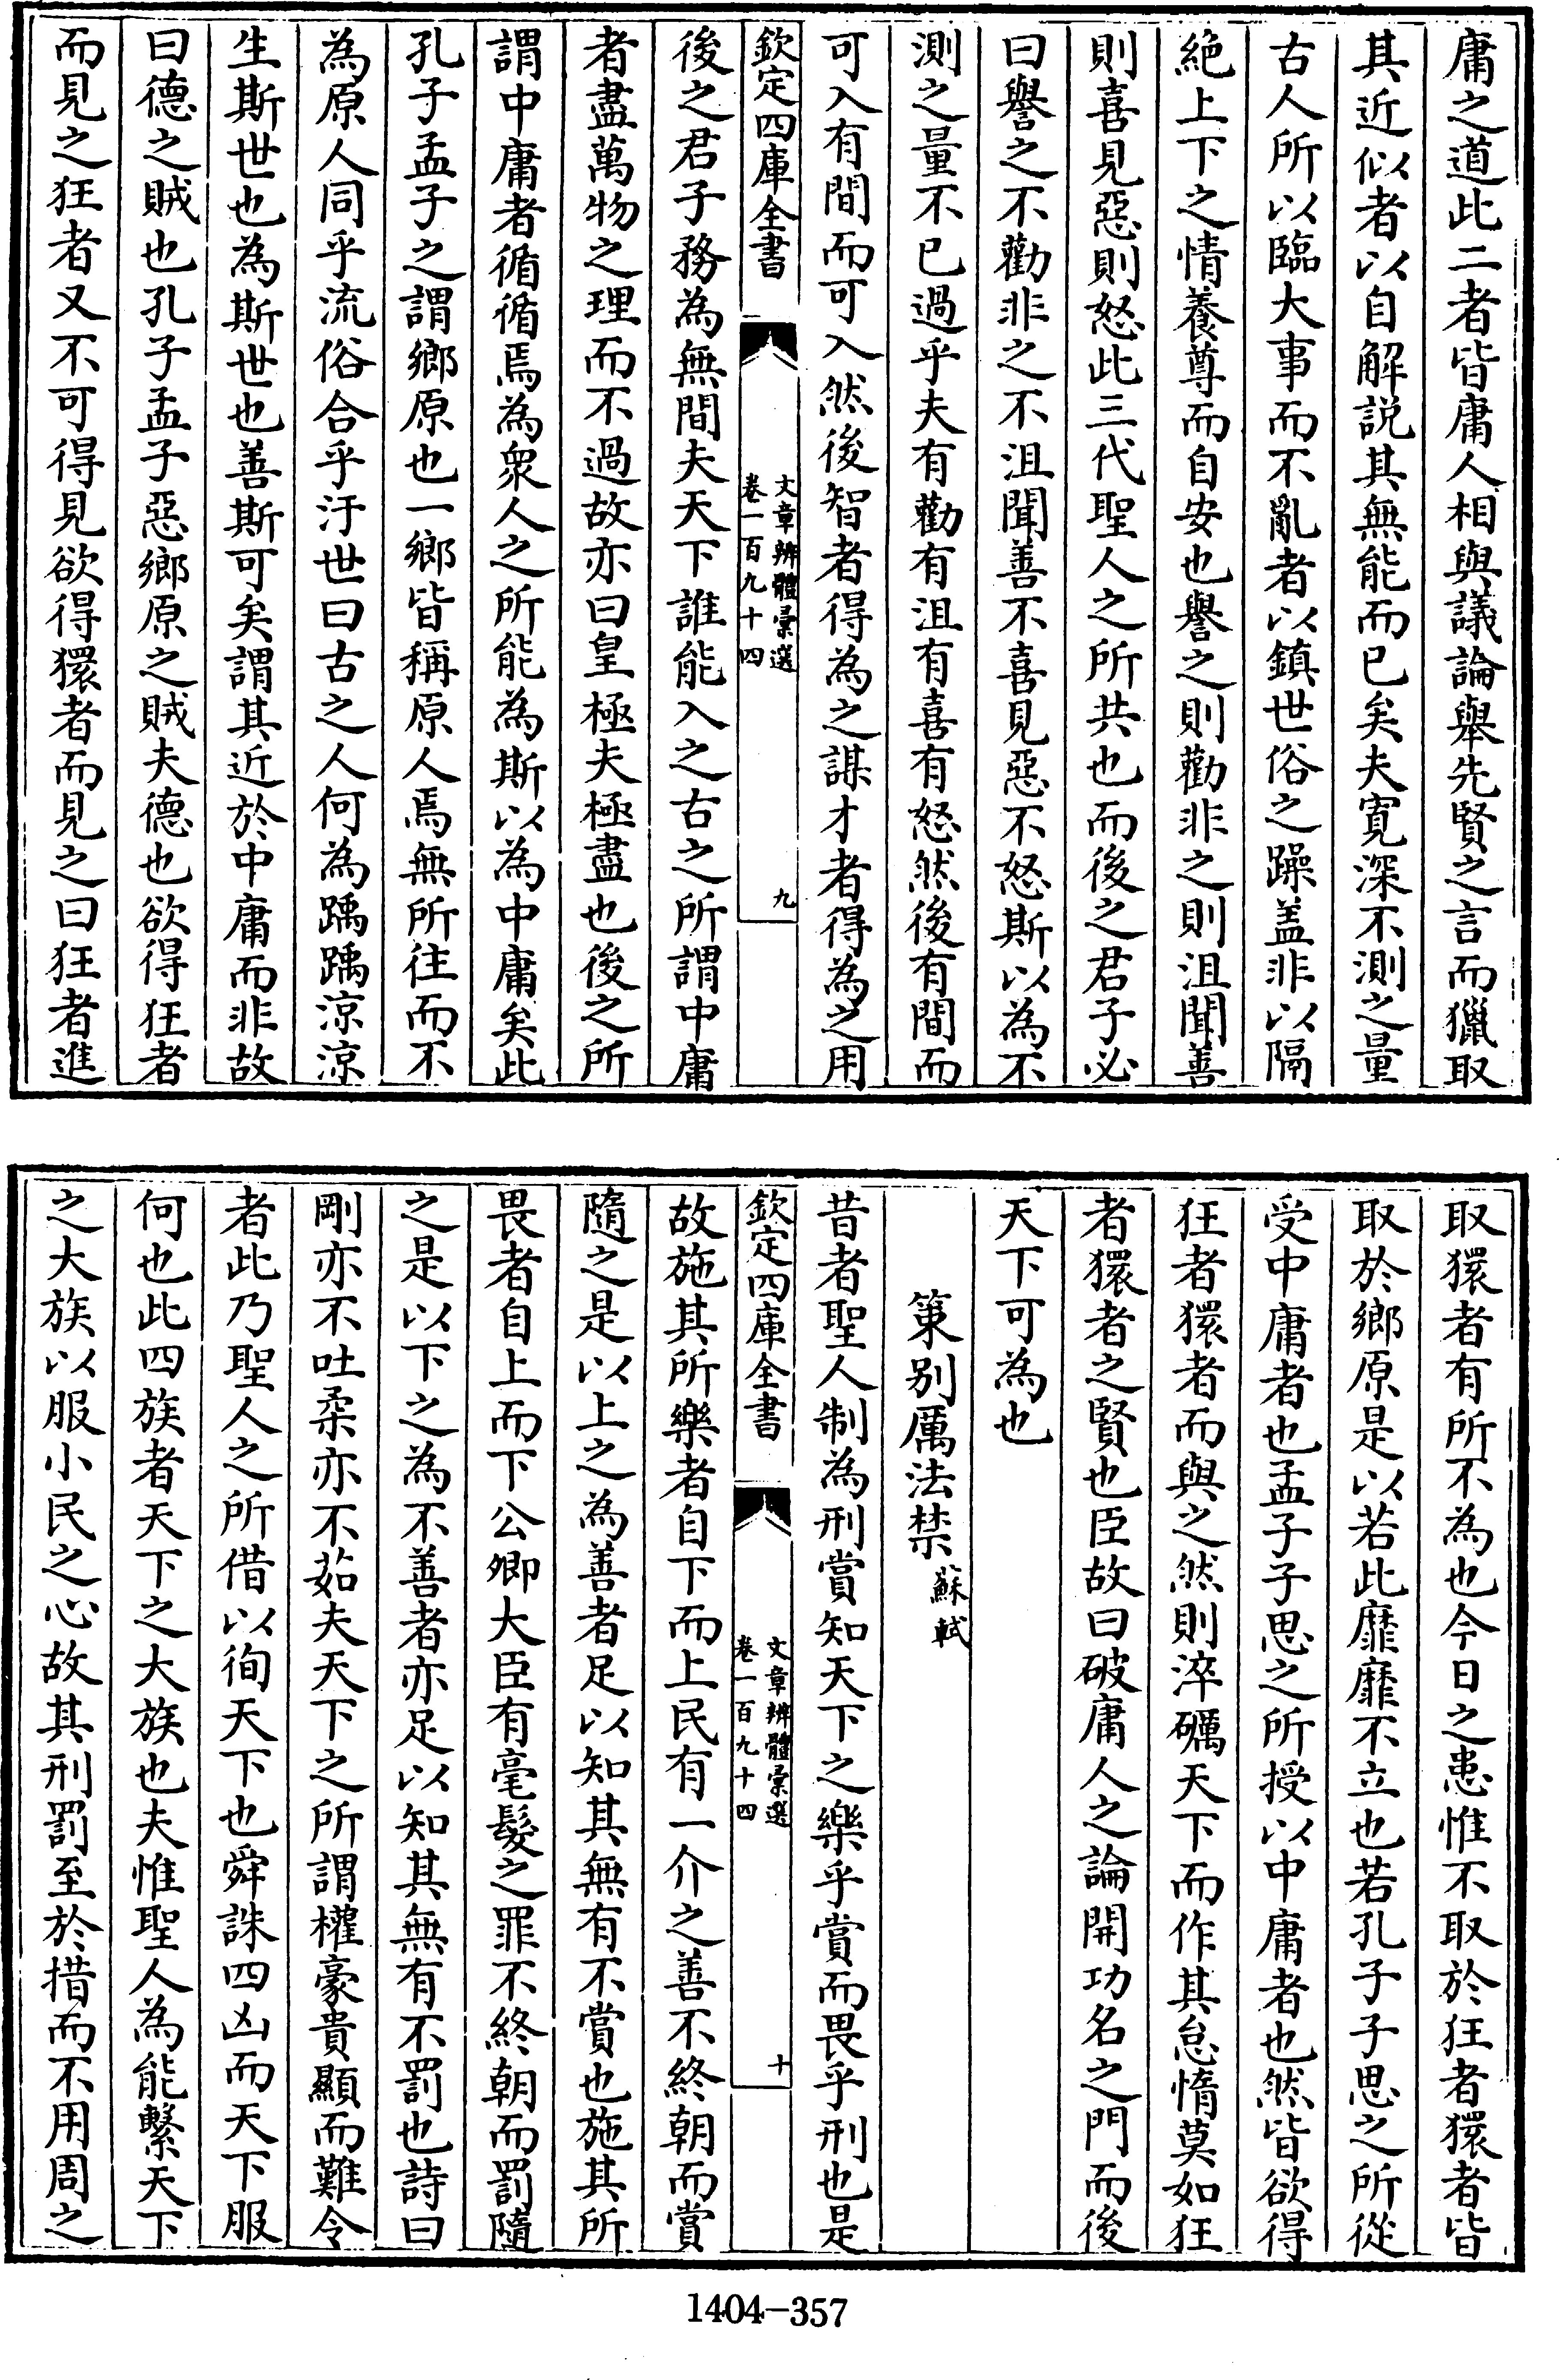 庸之道此二者皆庸人相與議論舉先賢之言而獵取
其近似者以自解説其無能而已矣夫寛深不測之量
古人所以臨大事而不亂者以鎮世俗之躁盖非以隔
絶上下之情養尊而自安也譽之則勸非之則沮聞善
則喜見惡則怒此三代聖人之所共也而後之君子必
曰譽之不勸非之不沮聞善不喜見惡不怒斯以為不
測之量不已過乎夫有勸有沮有喜有怒然後有間而
可入有間而可入然後智者得為之謀才者得為之用
欽定四庫全書
文章辨體彚選
卷一百九十四
九
後之君子務為無間夫天下誰能入之古之所謂中庸
者盡萬物之理而不過故亦曰皇極夫極盡也後之所
謂中庸者循循焉為衆人之所能為斯以為中庸矣此
孔子孟子之謂鄉原也一鄉皆稱原人焉無所往而不
為原人同乎流俗合乎汙世曰古之人何為踽踽涼涼
生斯世也為斯世也善斯可矣謂其近於中庸而非故
曰德之賊也孔子孟子惡鄉原之賊夫德也欲得狂者
而見之狂者又不可得見欲得獧者而見之曰狂者進
取獧者有所不為也今日之患惟不取於狂者獧者皆
取於鄉原是以若此靡靡不立也若孔子子思之所從
受中庸者也孟子子思之所授以中庸者也然皆欲得
狂者獧者而與之然則淬礪天下而作其怠惰莫如狂
者獧者之賢也臣故曰破庸人之論開功名之門而後
天下可為也
策别厲法禁蘇軾
昔者聖人制為刑賞知天下之樂乎賞而畏乎刑也是
欽定四庫全書
文章辨體彚選
卷一百九十四
十
故施其所樂者自下而上民有一介之善不終朝而賞
隨之是以上之為善者足以知其無有不賞也施其所
畏者自上而下公卿大臣有毫髮之罪不終朝而罰隨
之是以下之為不善者亦足以知其無有不罰也詩曰
剛亦不吐柔亦不茹夫天下之所謂權豪貴顯而難令
者此乃聖人之所借以徇天下也舜誅四凶而天下服
何也此四族者天下之大族也夫惟聖人為能繫天下
之大族以服小民之心故其刑罰至於措而不用周之
1404-357